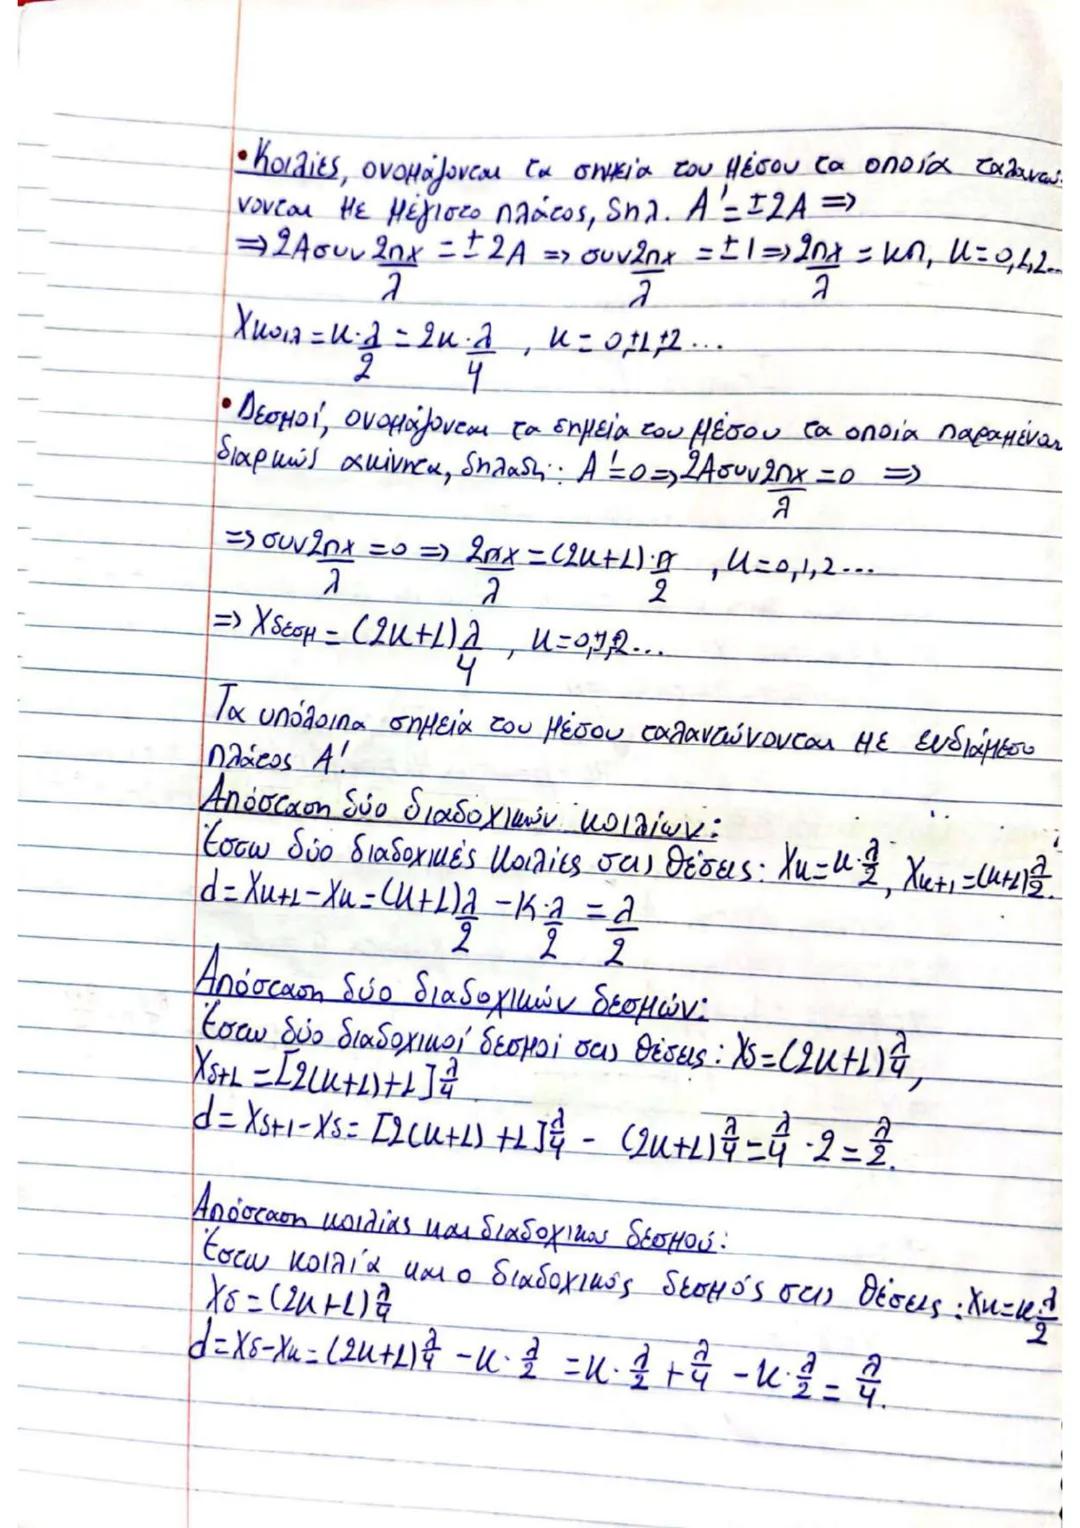 • Κοιλίες, ονομάζονται τα σημεία του μέσου τα οποία ταλαντώ-
νονται με μέγιστο πλάτος, δηλ. Α' = ±2Α =>
=> 2Ασυν 2πx/λ = ±2Α => συν 2πx/λ = ±1 => 2πx/λ = κπ, κ=0,1,2...
Xκοιλ = κ·λ/2 = 2κ·λ/4 , κ = 0,±1,±2...
• Δεσμοί, ονομάζονται τα σημεία του μέσου τα οποία παραμένουν
διαρκώς ακίνητα, δηλαδή: Α'=0 => 2Ασυν 2πx/λ = 0 =>
=> συν 2πx/λ = 0 => 2πx/λ = (2κ+1)·π/2 , κ=0,1,2...
=> Xδεσμ = (2κ+1)λ/4 , κ=0,1,2...
Τα υπόλοιπα σημεία του μέσου ταλαντώνονται με ενδιάμεσο
πλάτος Α'.
Απόσταση δύο διαδοχικών κοιλιών:
Έστω δύο διαδοχικές κοιλίες στις θέσεις: Xκ=κ·λ/2, Xκ+1=(κ+1)λ/2.
d = Xκ+1-Xκ = (κ+1)λ/2 - κ·λ/2 = λ/2
Απόσταση δύο διαδοχικών δεσμών:
Έστω δύο διαδοχικοί δεσμοί στις θέσεις: Xδ=(2κ+1)λ/4,
Xδ+1 = [2(κ+1)+1]λ/4
d = Xδ+1-Xδ = [2(κ+1)+1]λ/4 - (2κ+1)λ/4 = λ/4 ·2 = λ/2.
Απόσταση κοιλίας και διαδοχικού δεσμού:
Έστω κοιλία και ο διαδοχικός δεσμός στις θέσεις: Xκ=κ·λ/2
Xδ = (2κ+1)λ/4
d = Xδ-Xκ = (2κ+1)λ/4 - κ·λ/2 = κ·λ/2 + λ/4 - κ·λ/2 = λ/4.